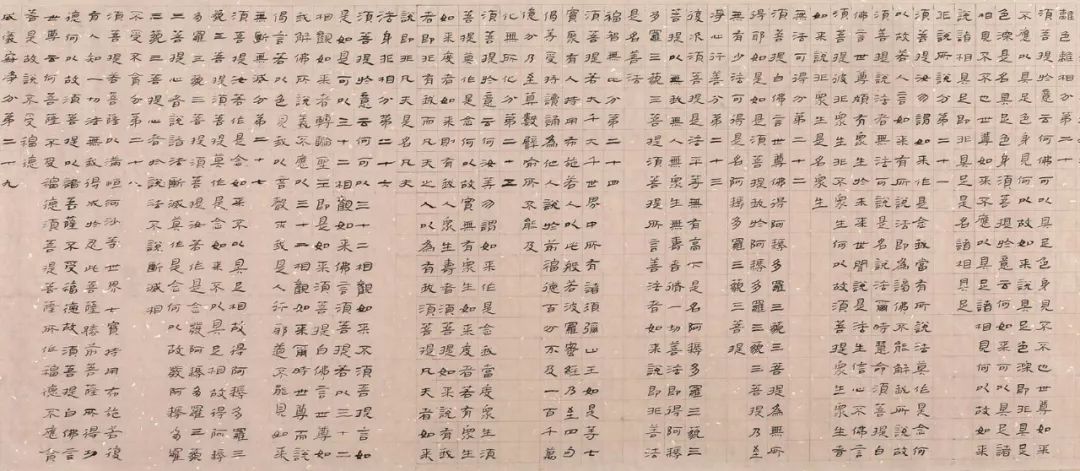 離色離相分第二十
須菩提於意云何佛可以具足色身見不不也世尊如來
不應以具足色身見何以故如來說具足色身即非具足
色身是名具足色身須菩提於意云何如來可以具足諸
相見不不也世尊如來不應以具足諸相見何以故如來
說諸相具足即非具足是名諸相具足
非說所說分第二十一
須菩提汝勿謂如來作是念我當有所說法莫作是念何
以故若人言如來有所說法即為謗佛不能解我所說故
須菩提說法者無法可說是名說法爾時慧命須菩提白
佛言世尊頗有眾生於未來世聞說是法生信心不佛言
須菩提彼非眾生非不眾生何以故須菩提眾生眾生者
如來說非眾生是名眾生
無法可得分第二十二
須菩提白佛言世尊佛得阿耨多羅三藐三菩提為無所
得耶如是如是須菩提我於阿耨多羅三藐三菩提乃至
無有少法可得是名阿耨多羅三藐三菩提
淨心行善分第二十三
復次須菩提是法平等無有高下是名阿耨多羅三藐三
菩提以無我無人無眾生無壽者修一切善法即得阿耨
多羅三藐三菩提須菩提所言善法者如來說即非善法
是名善法
福智無比分第二十四
須菩提若三千大千世界中所有諸須彌山王如是等七
寶聚有人持用布施若人以此般若波羅蜜經乃至四句
偈等受持讀誦為他人說於前福德百分不及一百千萬
億分乃至算數譬喻所不能及
化無所化分第二十五
須菩提於意云何汝等勿謂如來作是念我當度眾生須
菩提莫作是念何以故實無有眾生如來度者若有眾生
如來度者如來即有我人眾生壽者須菩提如來說有我
者即非有我而凡夫之人以為有我須菩提凡夫者如來
說即非凡夫是名凡夫
法身非相分第二十六
須菩提於意云何可以三十二相觀如來不須菩提言如
是如是以三十二相觀如來佛言須菩提若以三十二
相觀如來者轉輪聖王即是如來須菩提白佛言世尊如
我解佛所說義不應以三十二相觀如來爾時世尊而說
偈言若以色見我以音聲求我是人行邪道不能見如來
無斷無滅分第二十七
須菩提汝若作是念如來不以具足相故得阿耨多羅三
藐三菩提須菩提莫作是念如來不以具足相故得阿耨
多羅三藐三菩提須菩提汝若作是念發阿耨多羅三藐
三菩提心者說諸法斷滅莫作是念何以故發阿耨多羅
三藐三菩提心者於法不說斷滅相
不受不貪分第二十八
須菩提若菩薩以滿恒河沙等世界七寶持用布施若復
有人知一切法無我得成於忍此菩薩勝前菩薩所得功
德何以故須菩提以諸菩薩不受福德故須菩提白佛言
世尊云何菩薩不受福德須菩提菩薩所作福德不應貪
著是故說不受福德
威儀寂淨分第二十九